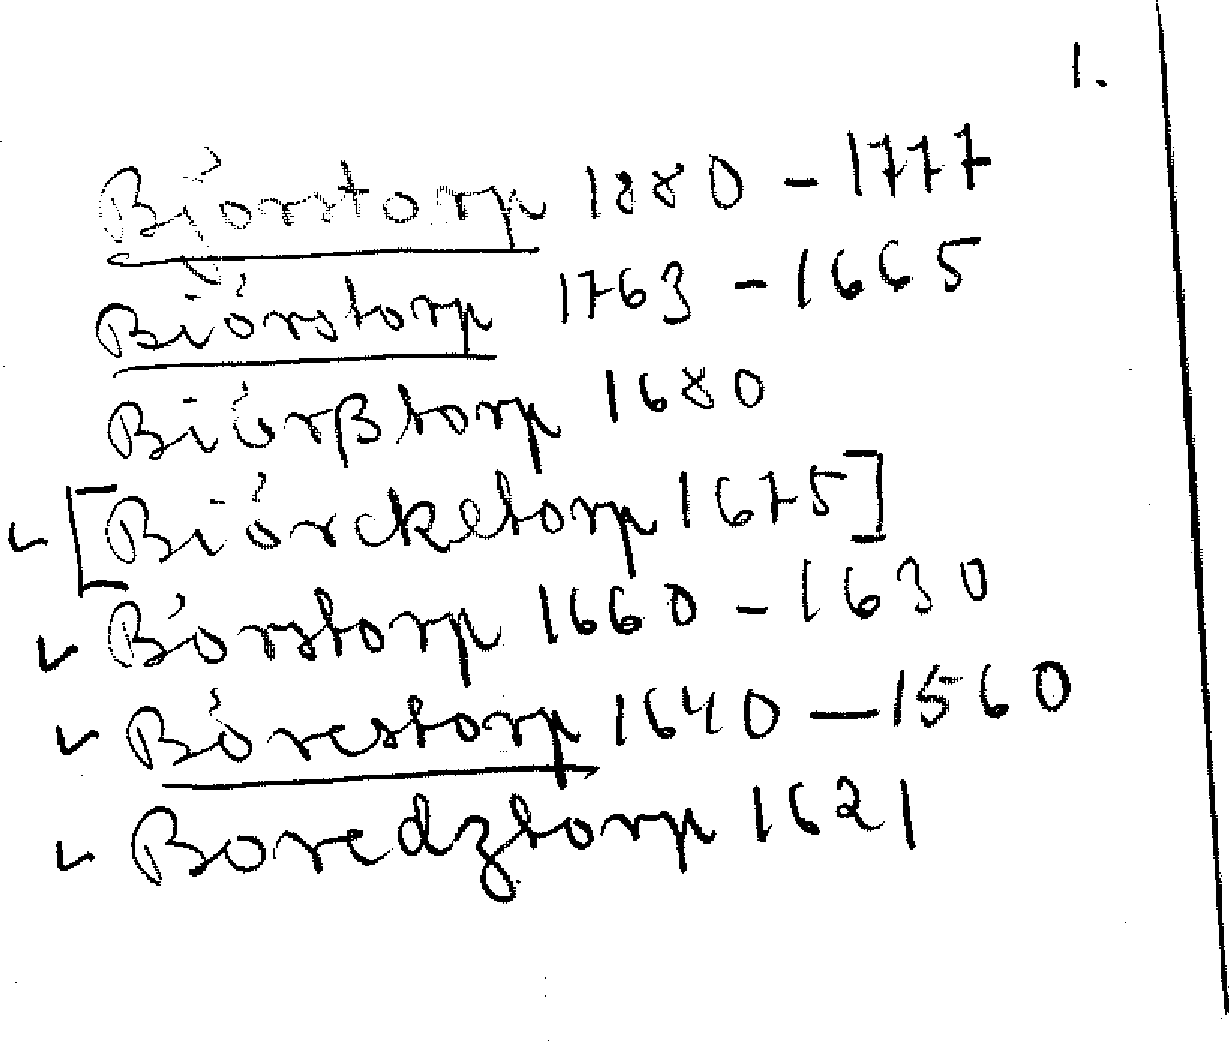 1.
Björstorp 1880 - 1777
Biörstorp 1763 - 1665
Biörßtorp 1680
[Biörcketorp 1675]
Börstorp 1660 - 1630
Börestorp 1640 - 1560
Boredztorp 1621